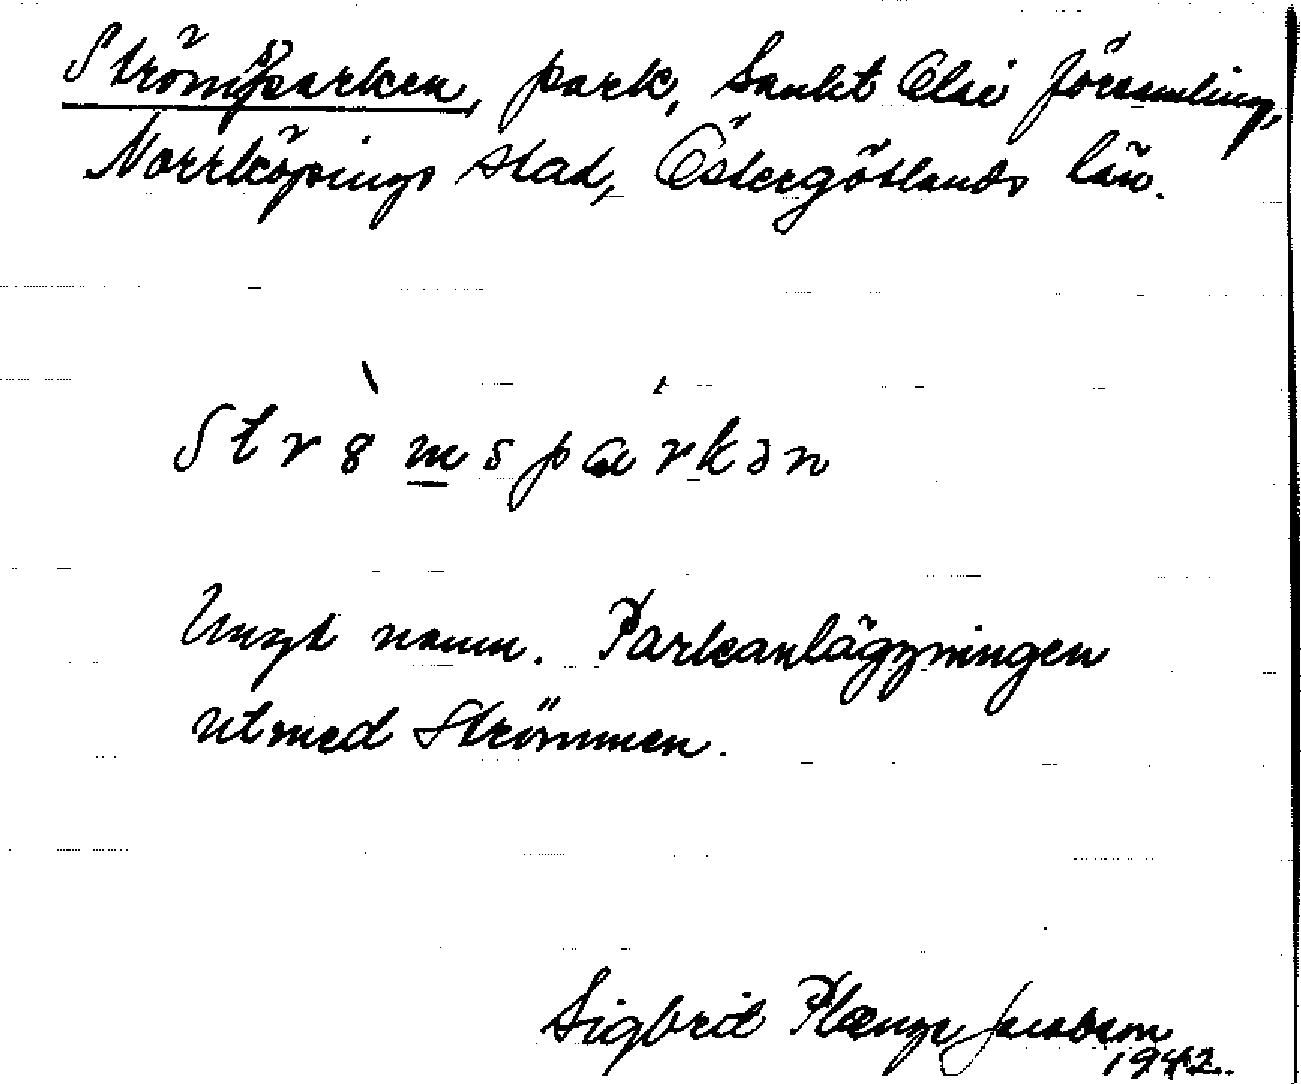 Strömsparken, park, Sankt Olai församling,
Norrköpings stad, Östergötlands län.
Strömsparkən
Ungt namn. Parkanläggningen
utmed Strömmen.
Sigbrit Plænge Jacobson
1942.